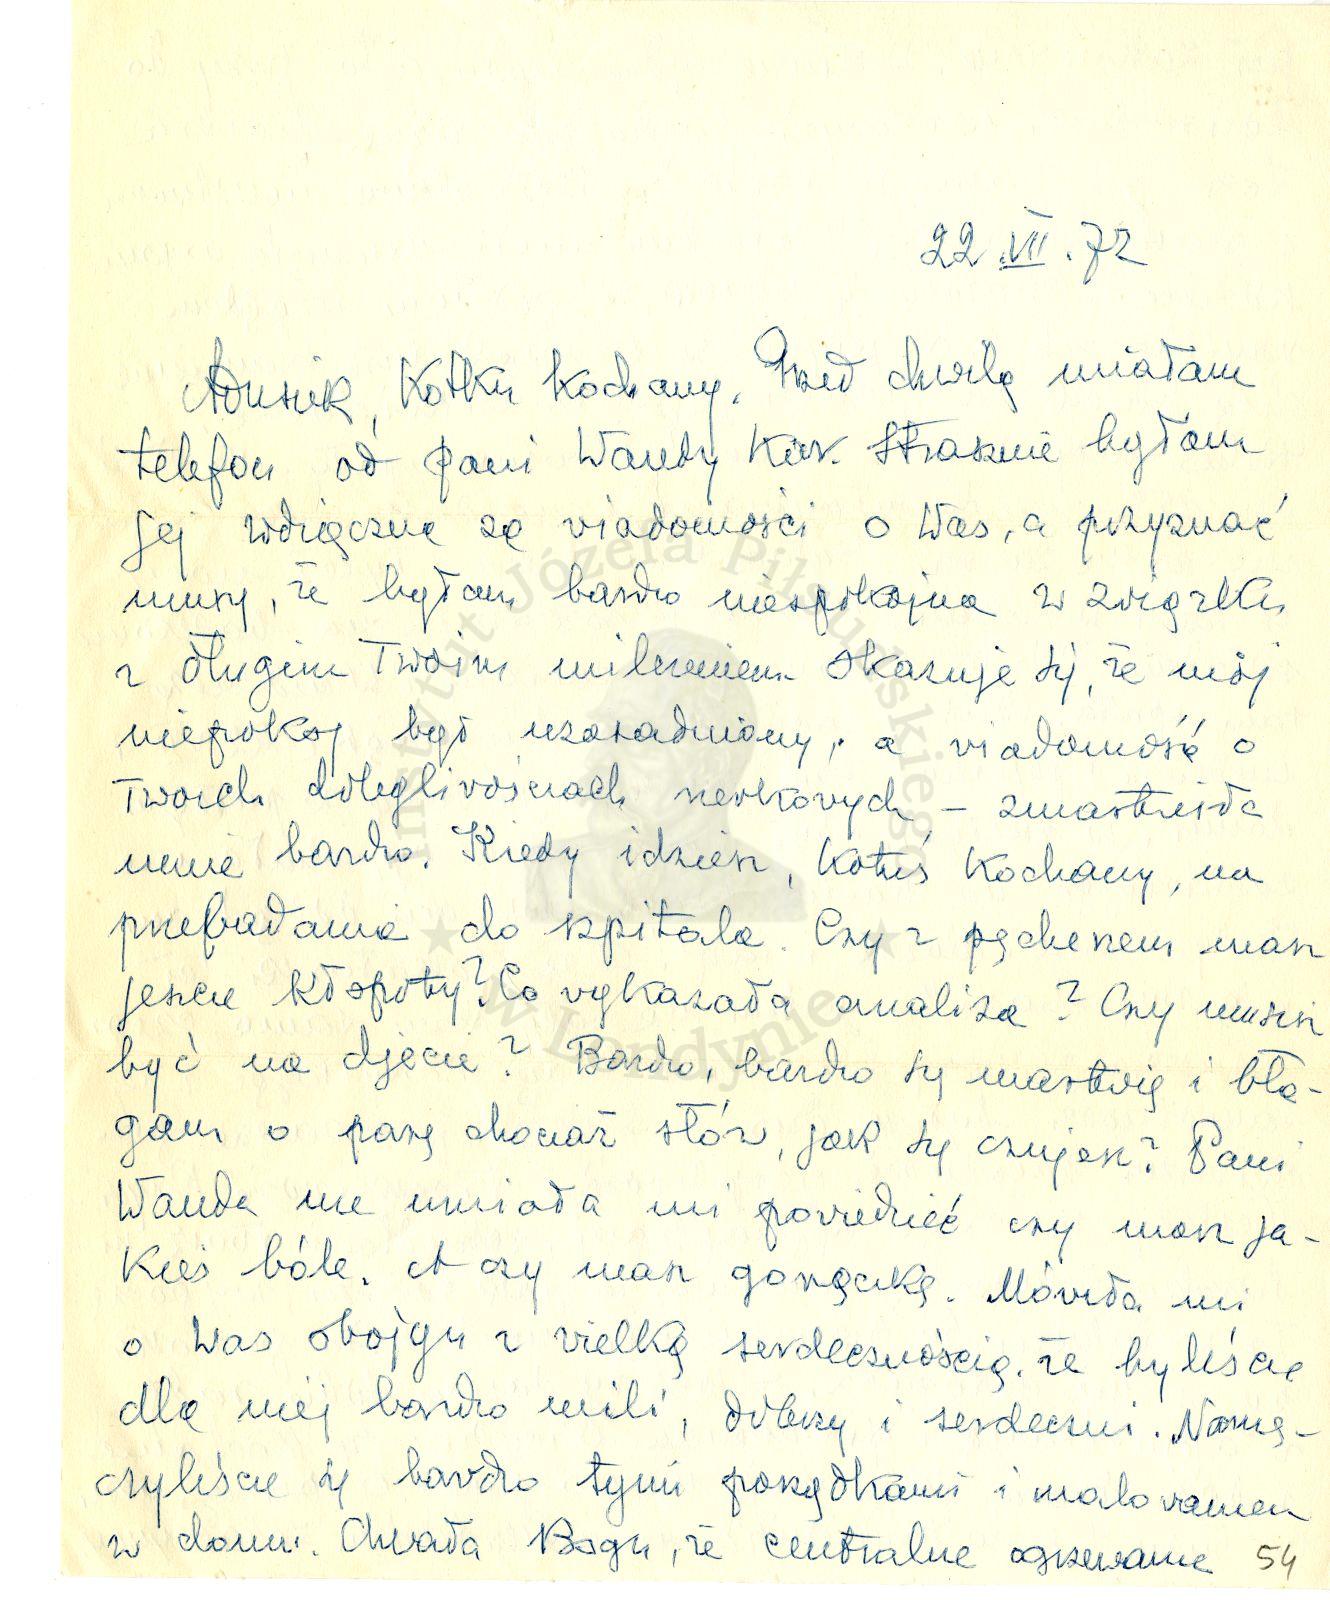 22.VII.72
Adusik, Kotku kochany. Przed chwilą miałam
telefon od pani Wandy Kar. Strasznie byłam
jej wdzięczna za wiadomości o Was, a przyznać
muszę, że byłam bardzo niespokojna w związku
z długim Twoim milczeniem. Okazuje się, że mój
niepokój był uzasadniony, a wiadomość o
Twoich dolegliwościach nerkowych – zmartwiła
mnie bardzo. Kiedy idziesz, Kotuś Kochany, na
prześwietlania do szpitala. Czy z pęcherzem masz
jeszcze kłopoty? Co wykazała analiza? Czy musisz
być na diecie? Bardzo, bardzo się martwię i bła-
gam o parę chociaż słów, jak się czujesz? Pani
Wanda nie umiała mi powiedzieć czy masz ja-
kieś bóle. A czy masz gorączkę. Mówiła mi
o Was obojgu z wielką serdecznością, że byliście
dla niej bardzo mili, dobrzy i serdeczni. Namę-
czyliście się bardzo tymi porządkami i malowaniem
w domu. Chwała Bogu, że centralne ogrzewanie 54
Instytut Józefa Piłsudskiego
w Londynie